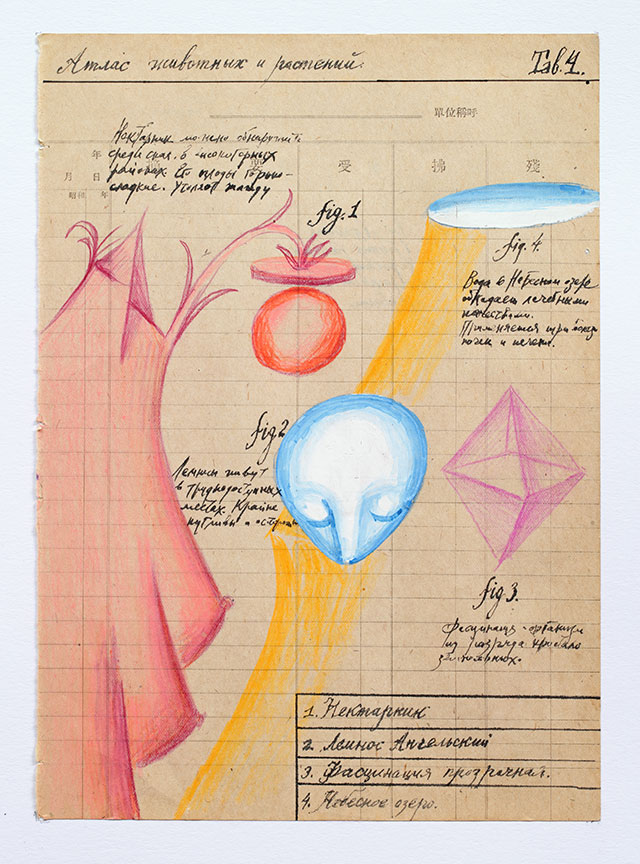 Атлас животных и растений.
Таб.4.
單位稱呼
年
月 日
昭和 年
受
拂
殘
Нектарник можно обнаружить
среди скал в некоторых
районах. Его плоды горько-
сладкие. Утоляют жажду
fig. 1
fig. 4.
Вода в Небесном озере
обладает лечебными
качествами.
Применяется при
почек и печени.
fig. 2
живут
в труднодоступных
местах. Крайне
пугливы и
fig. 3.
Фасцинация - организм
из разряда
1. Нектарник
2. Лемнос Ангельский
3. Фасцинация прозрачная.
4. Небесное озеро.